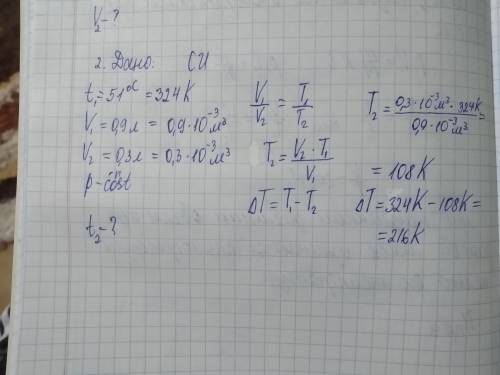 V₂ - ?
2. Дано: СИ
t₁ = 51°C = 324K
V₁ = 0,9л = 0,9·10⁻³м³
V₂ = 0,3л = 0,3·10⁻³м³
p - const
t₂ - ?
V₁/V₂ = T₁/T₂
T₂ = V₂·T₁/V₁
ΔT = T₁ - T₂
T₂ = 0,3·10⁻³м³·324K/0,9·10⁻³м³ =
= 108K
ΔT = 324K - 108K =
= 216K